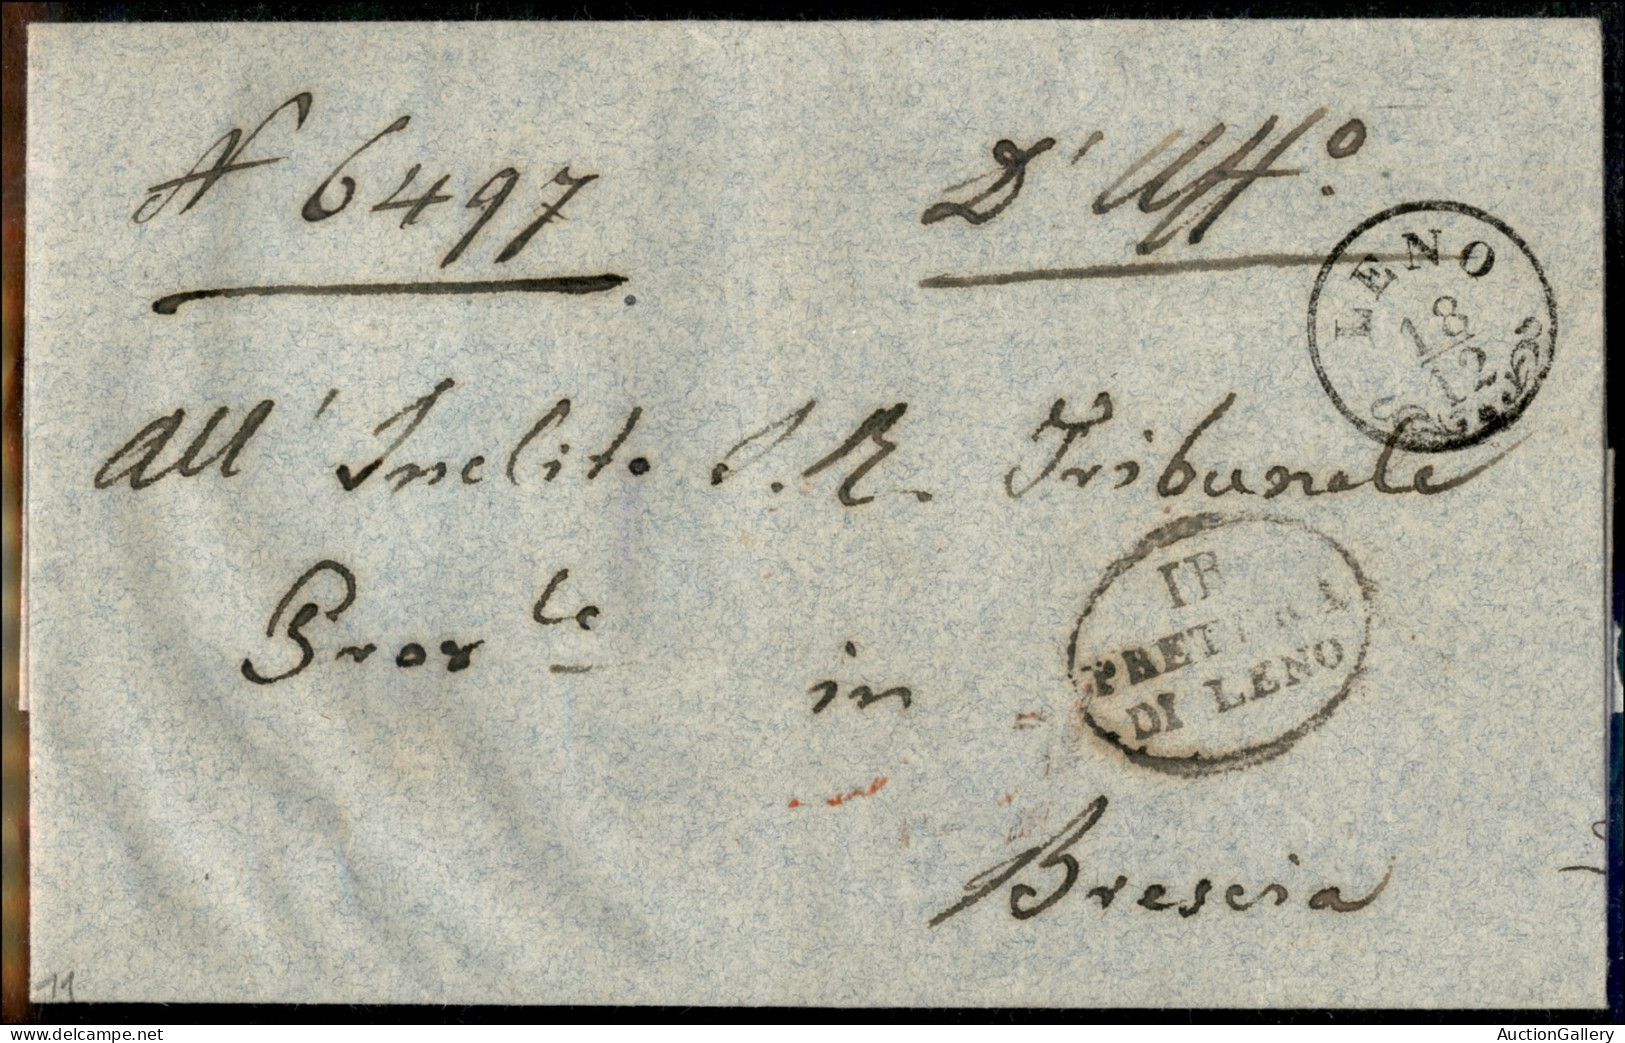 N 6497
D'Uff.º
LENO
18
12
All' Inclito I. R. Tribunale
Prov.le
in
PRETURA
DI LENO
Brescia
AuctionGallery